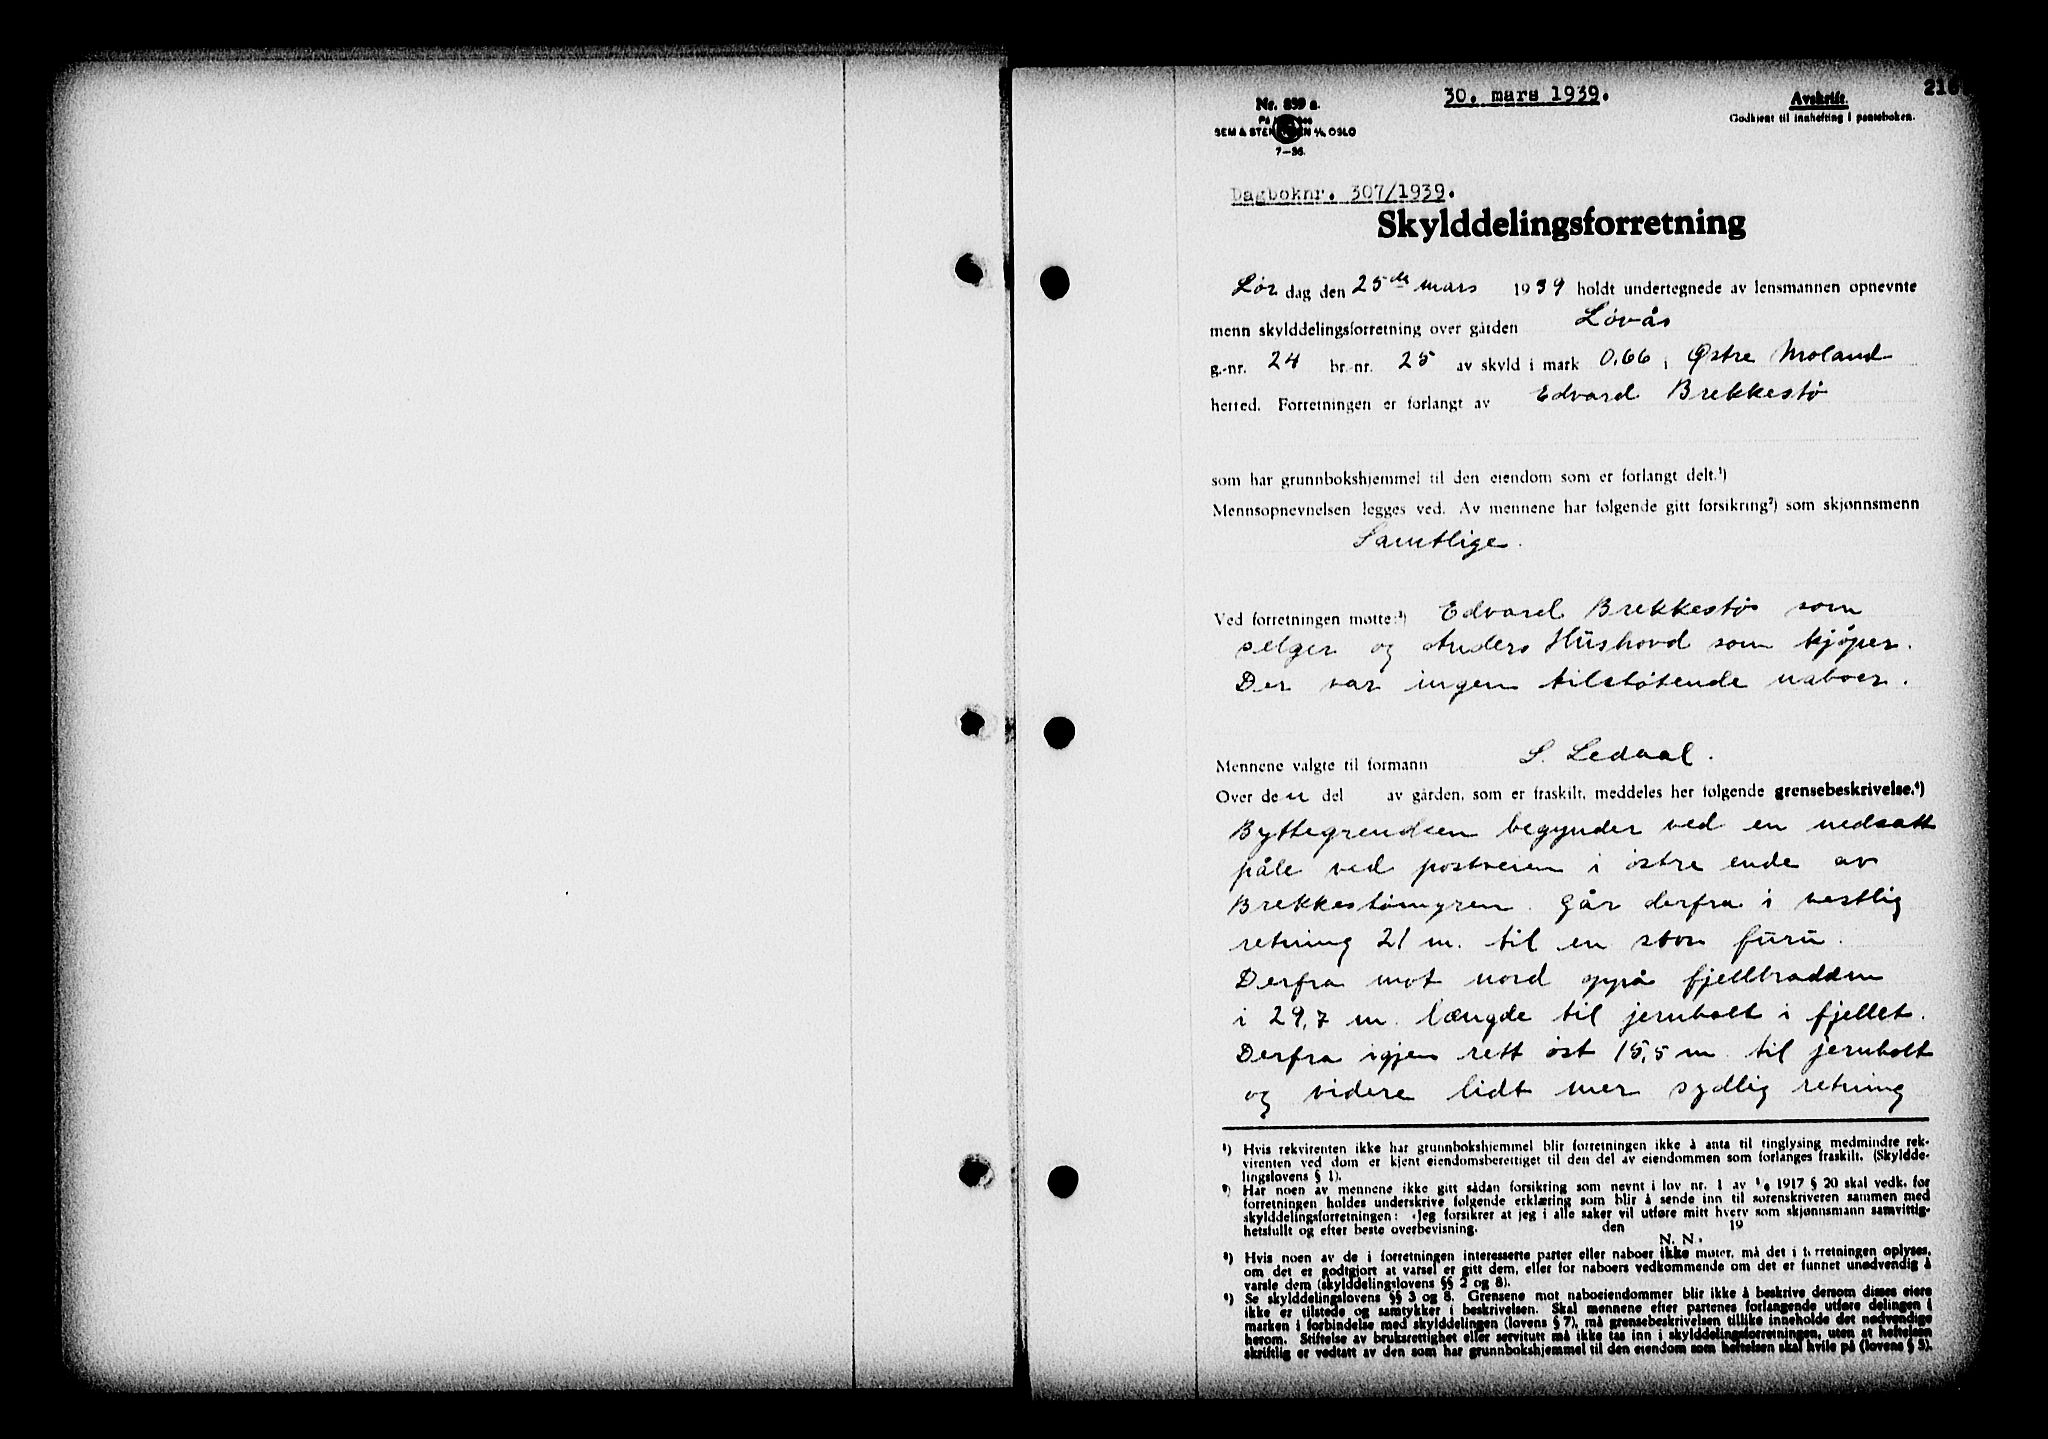 30. mars 1939.
Nr. 859 a.
SEM & STENERSEN A/S, OSLO
7—36.
Avskrift.
Godkjent til innhefting i panteboken.
Dagboknr. 307/1939.
Skylddelingsforretning
Lør dag den 25de mars 1939 holdt undertegnede av lensmannen opnevnte
menn skylddelingsforretning over gården Løvås
g.-nr. 24 br.-nr. 25 av skyld i mark 0,66 i Østre Moland
herred. Forretningen er forlangt av Edvard Brekkestø
som har grunnbokshjemmel til den eiendom som er forlangt delt.¹)
Mennsopnevnelsen legges ved. Av mennene har følgende gitt forsikring²) som skjønnsmenn
Samtlige.
Ved forretningen møtte:³) Edvard Brekkestø som
selger og Anders Hushovd som kjøper.
Der var ingen tilstøtende naboer.
Mennene valgte til formann S. Ledaal.
Over den del av gården, som er fraskilt, meddeles her følgende grensebeskrivelse.⁴)
Byttegrendsen begynder ved en nedsatt
påle ved postveien i østre ende av
Brekkestømyren. Går derfra i vestlig
retning 21 m. til en stor furu.
Derfra mot nord oppå fjellbradden
i 29,7 m. længde til jernbolt i fjellet.
Derfra igjen rett øst 15,5 m. til jernbolt
og videre lidt mer sydlig retning
¹) Hvis rekvirenten ikke har grunnbokshjemmel blir forretningen ikke å anta til tinglysing medmindre rek-
virenten ved dom er kjent eiendomsberettiget til den del av eiendommen som forlanges fraskilt. (Skyldde-
lingslovens § 1).
²) Har noen av mennene ikke gitt sådan forsikring som nevnt i lov nr. 1 av 1/6 1917 § 20 skal vedk. før
forretningen holdes underskrive følgende erklæring som blir å sende inn til sorenskriveren sammen med
skylddelingsforretningen: «Jeg forsikrer at jeg i alle saker vil utføre mitt hverv som skjønnsmann samvittig-
hetsfullt og efter beste overbevisning. den 19
N. N.
³) Hvis noen av de i forretningen interesserte parter eller naboer ikke møter, må det i forretningen oplyses,
om det er godtgjort at varsel er gitt dem, eller for naboers vedkommende om det er funnet unødvendig å
varsle dem (skylddelingslovens §§ 2 og 8).
⁴) Se skylddelingslovens §§ 3 og 8. Grensene mot naboeiendommer blir ikke å beskrive dersom disses eiere
ikke er tilstede og samtykker i beskrivelsen. Skal mennene efter partenes forlangende utføre delingen i
marken i forbindelse med skylddelingen (lovens § 7), må grensebeskrivelsen tillike inneholde det nødvendige
herom. Stiftelse av bruksrettighet eller servitutt må ikke tas inn i skylddelingsforretningen, uten at heftelsen
skriftlig er vedtatt av den som har grunnbokshjemmel til den eiendom som heftelsen skal hvile på (lovens § 5).